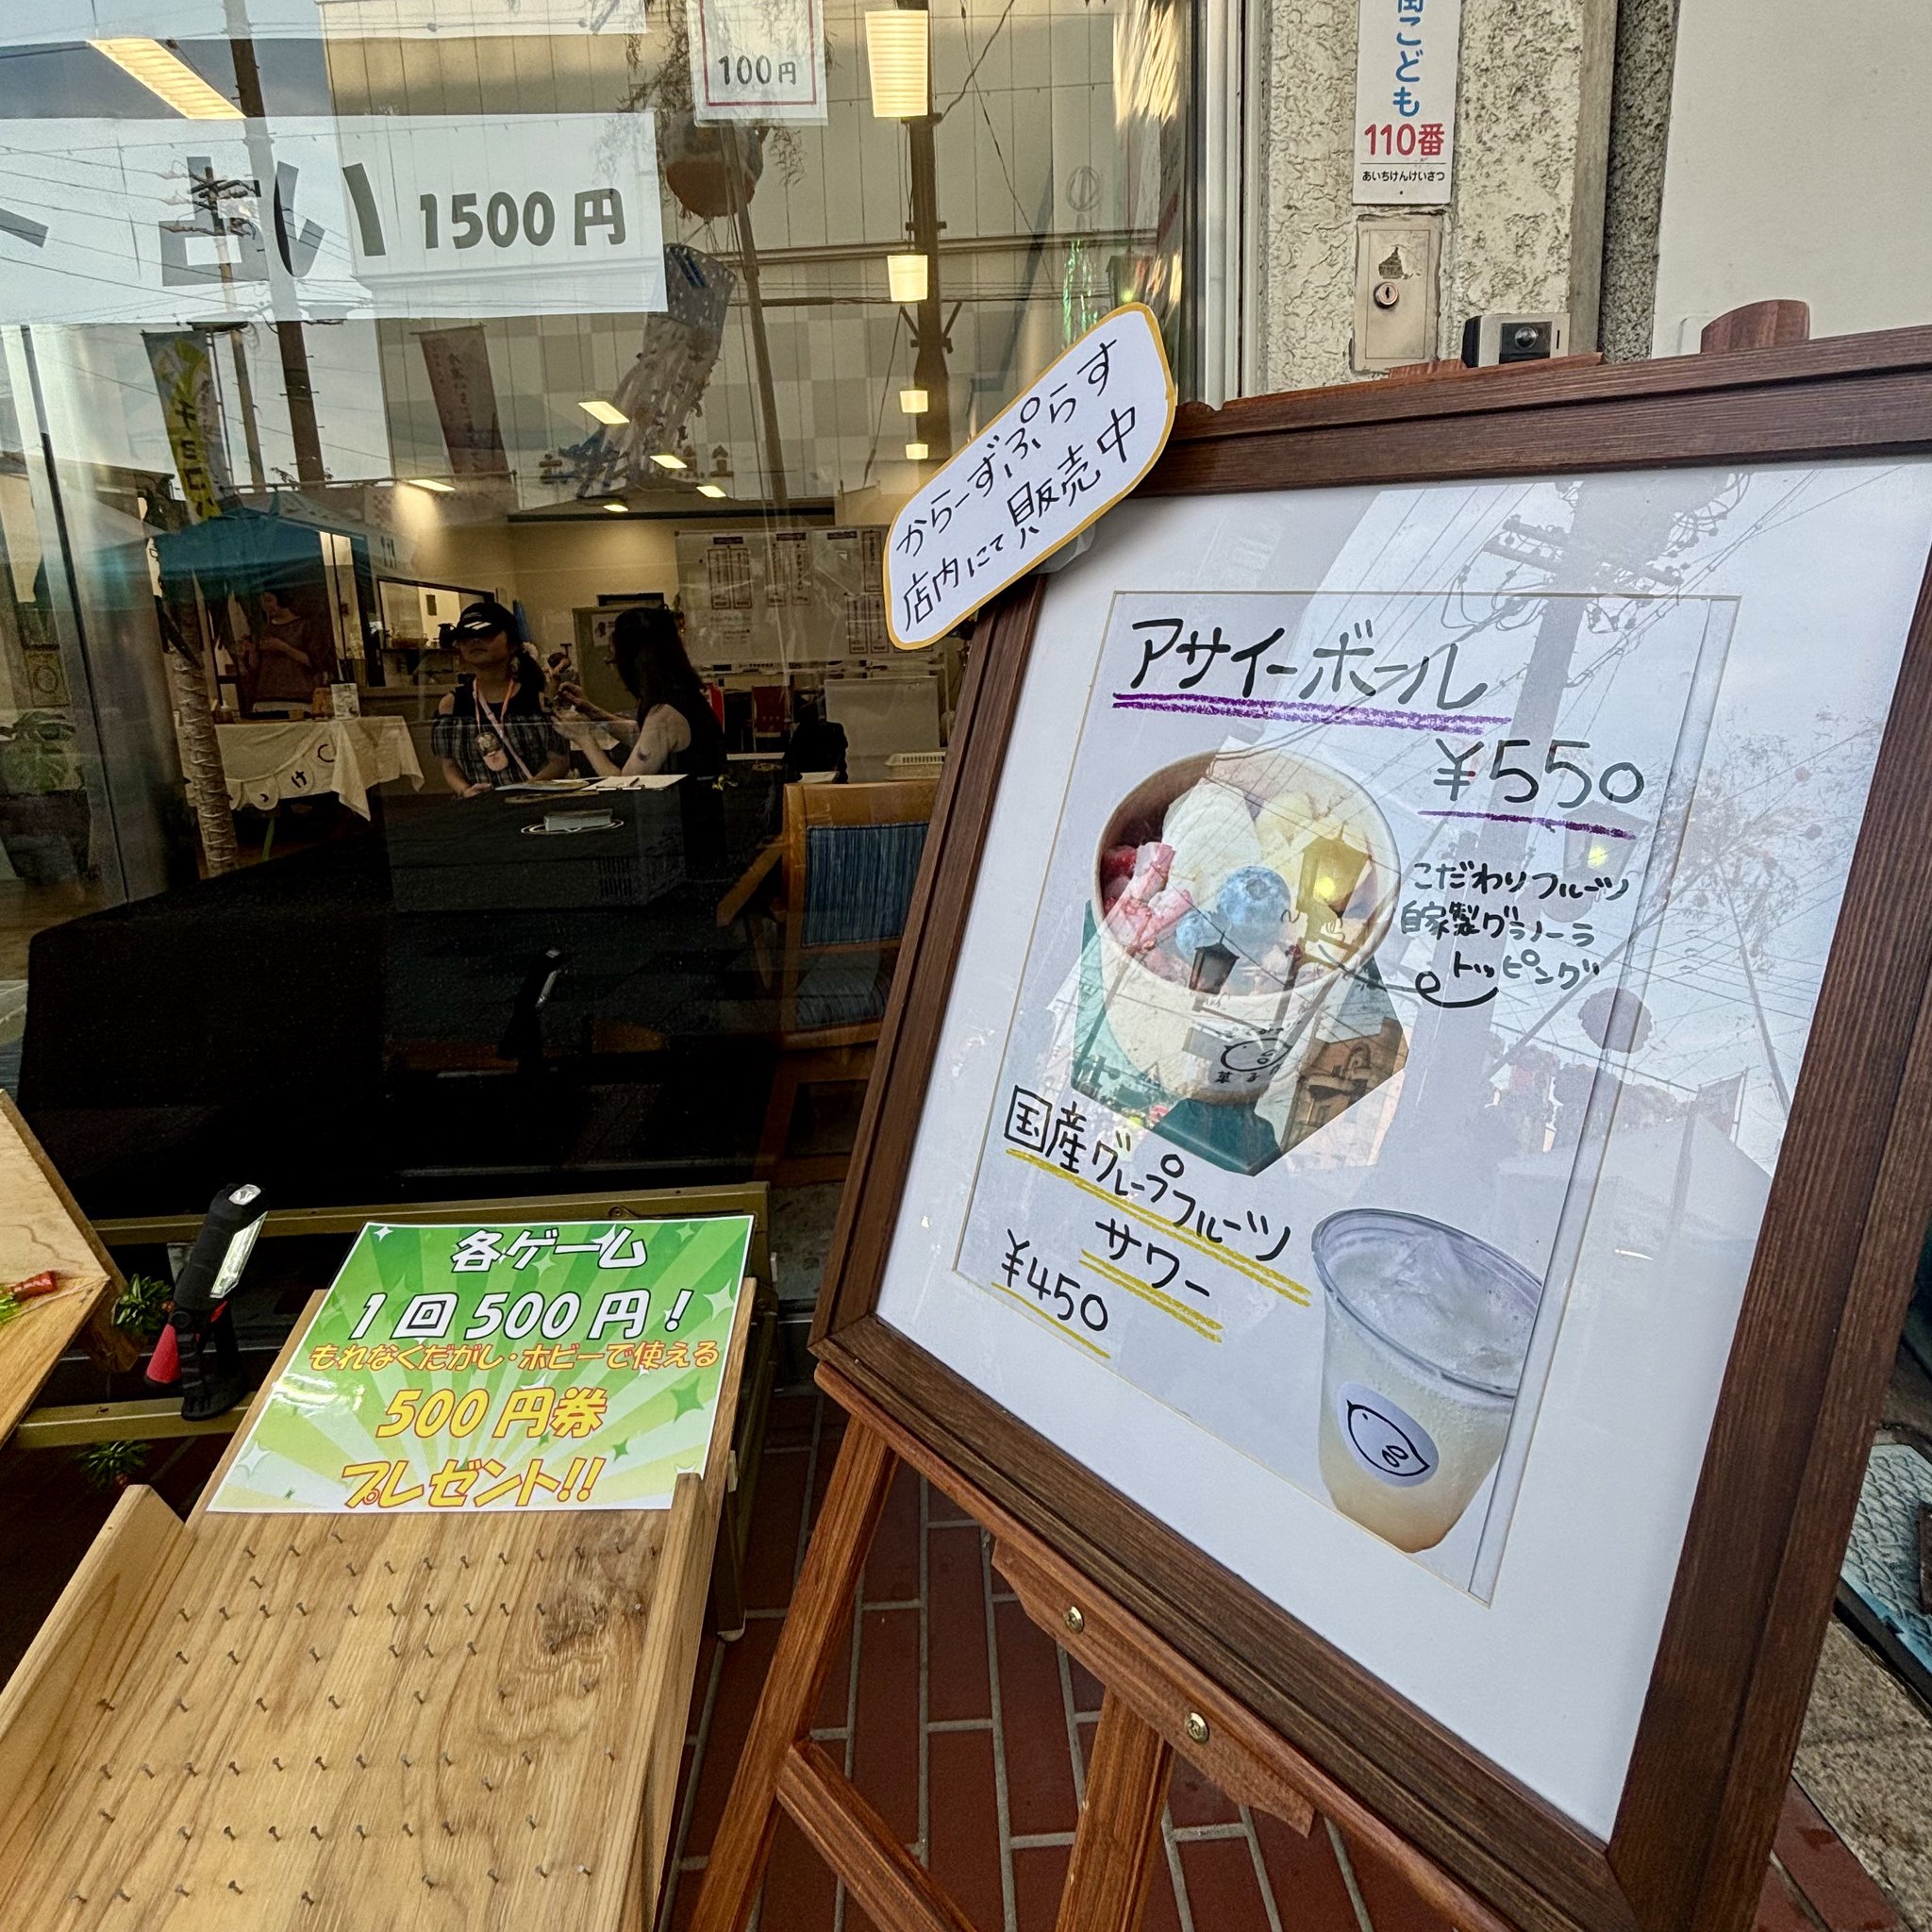 100円
占い 1500円
こども
110番
あいちけんけいさつ
からーずぷらす
店内にて販売中
アサイーボール
¥550
こだわりフルーツ
自家製グラノーラ
トッピング
国産グレープフルーツ
サワー
¥450
各ゲーム
1回500円!
もれなくだがし・ホビーで使える
500円券
プレゼント!!